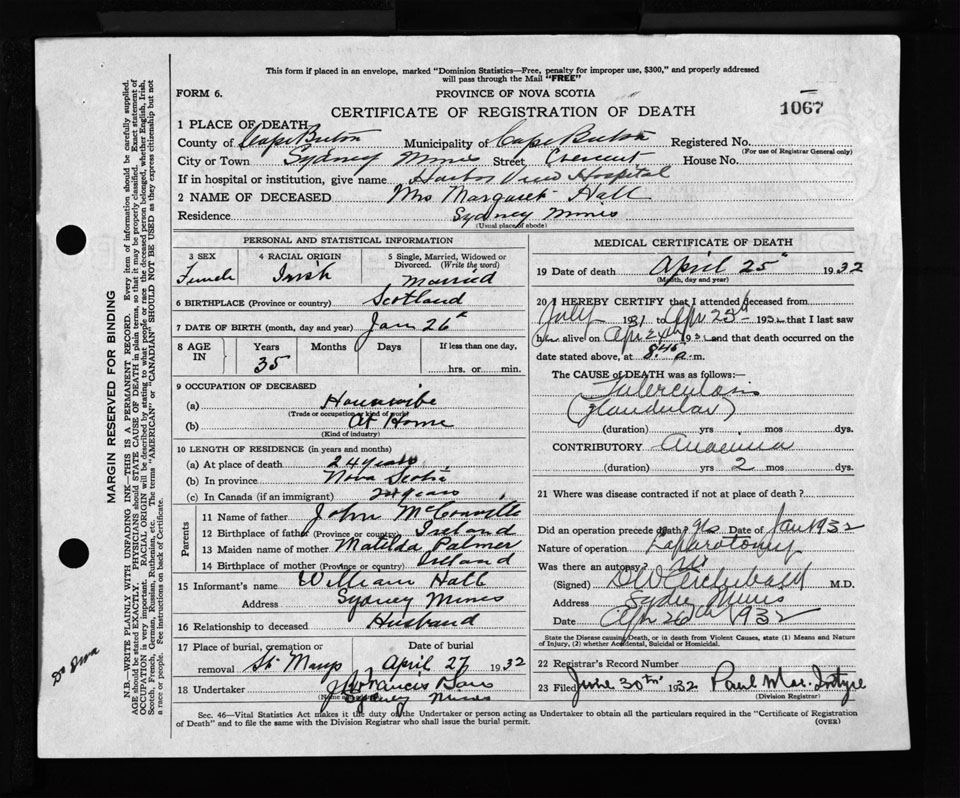 This form if placed in an envelope, marked "Dominion Statistics—Free, penalty for improper use, $300," and properly addressed
will pass through the Mail "FREE"
FORM 6.
PROVINCE OF NOVA SCOTIA
CERTIFICATE OF REGISTRATION OF DEATH
1067
1 PLACE OF DEATH
County of Cape Breton Municipality of Cape Breton Registered No.
(For use of Registrar General only)
City or Town Sydney Mines Street, Crescent House No.
If in hospital or institution, give name Harbor View Hospital
2 NAME OF DECEASED Mrs Margaret Hall
Residence Sydney Mines
(Usual place of abode)
PERSONAL AND STATISTICAL INFORMATION
3 SEX
Female
4 RACIAL ORIGIN
Irish
5 Single, Married, Widowed or
Divorced. (Write the word)
Married
6 BIRTHPLACE (Province or country) Scotland
7 DATE OF BIRTH (month, day and year) Jan 26th
8 AGE IN
Years
35
Months
Days
If less than one day,
hrs. or min.
9 OCCUPATION OF DECEASED
(a) Housewife
(Trade or occupation or kind of work)
(b) At Home
(Kind of industry)
10 LENGTH OF RESIDENCE (in years and months)
(a) At place of death 24 years
(b) In province Nova Scotia
(c) In Canada (if an immigrant) 24 years
Parents
11 Name of father John McConville
12 Birthplace of father (Province or country) Ireland
13 Maiden name of mother Matilda Palmer
14 Birthplace of mother (Province or country) Ireland
15 Informant's name William Hall
Address Sydney Mines
16 Relationship to deceased Husband
17 Place of burial, cremation or
removal St Marys
Date of burial
April 27 1932
18 Undertaker J Francis
Sydney Mines
MEDICAL CERTIFICATE OF DEATH
19 Date of death April 25th 1932
(Month, day and year)
20 I HEREBY CERTIFY that I attended deceased from
July 1931 to Apr 25th 1932 that I last saw
her alive on Apr 24th 1932 and that death occurred on the
date stated above, at 8.45 a.m.
The CAUSE of DEATH was as follows:
Tuberculosis
(Glandular)
(duration) yrs mos dys.
CONTRIBUTORY Anaemia
(duration) yrs 2 mos dys.
21 Where was disease contracted if not at place of death?
Did an operation precede death? yes Date of Jan 1932
Nature of operation Laparotomy
Was there an autopsy? No
(Signed) Archibald M.D.
Address Sydney Mines
Date Apr 26th 1932
State the Disease causing Death, or in death from Violent Causes, state (1) Means and Nature
of Injury, (2) whether Accidental, Suicidal or Homicidal.
22 Registrar's Record Number
23 Filed June 30th 1932 Paul MacIntyre
(Division Registrar)
Sec. 46—Vital Statistics Act makes it the duty of the Undertaker or person acting as Undertaker to obtain all the particulars required in the "Certificate of Registration
of Death" and to file the same with the Division Registrar who shall issue the burial permit.
(OVER)
MARGIN RESERVED FOR BINDING
N.B.—WRITE PLAINLY WITH UNFADING INK—THIS IS A PERMANENT RECORD. Every item of information should be carefully supplied.
AGE should be stated EXACTLY. PHYSICIANS should STATE CAUSE OF DEATH in plain terms, so that it may be properly classified. Exact statement of
OCCUPATION is very important. RACIAL ORIGIN will be described by stating to what people or race the deceased person belonged, whether English, Irish,
Scotch, French, German, Russian, Ruthenian, etc. The terms "AMERICAN" or "CANADIAN" SHOULD NOT BE USED as they express citizenship but not
a race or people. See instructions on back of Certificate.